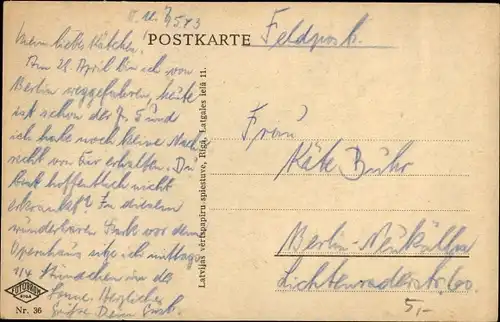 POSTKARTE
Feldpost.
Mein liebes Kätchen!
Am 28. April bin ich von
Berlin weggefahren, heute
ist schon der 7. 5 und
ich habe noch keine Nach-
richt von Dir erhalten. Du
bist hoffentlich nicht
erkrankt? In diesem
wunderbaren Park vor dem
Opernhaus sitze ich mittags
1/4 Stündchen in der
Sonne. Herzliche
Grüße Dein
Frau
Käte Buhr
Berlin-Neukölln
Lichtenraderstr. 60.
5,-
Latvijas vērtspapīru spiestuve, Rīgā, Latgales ielā 11.
RIGA
Nr. 36